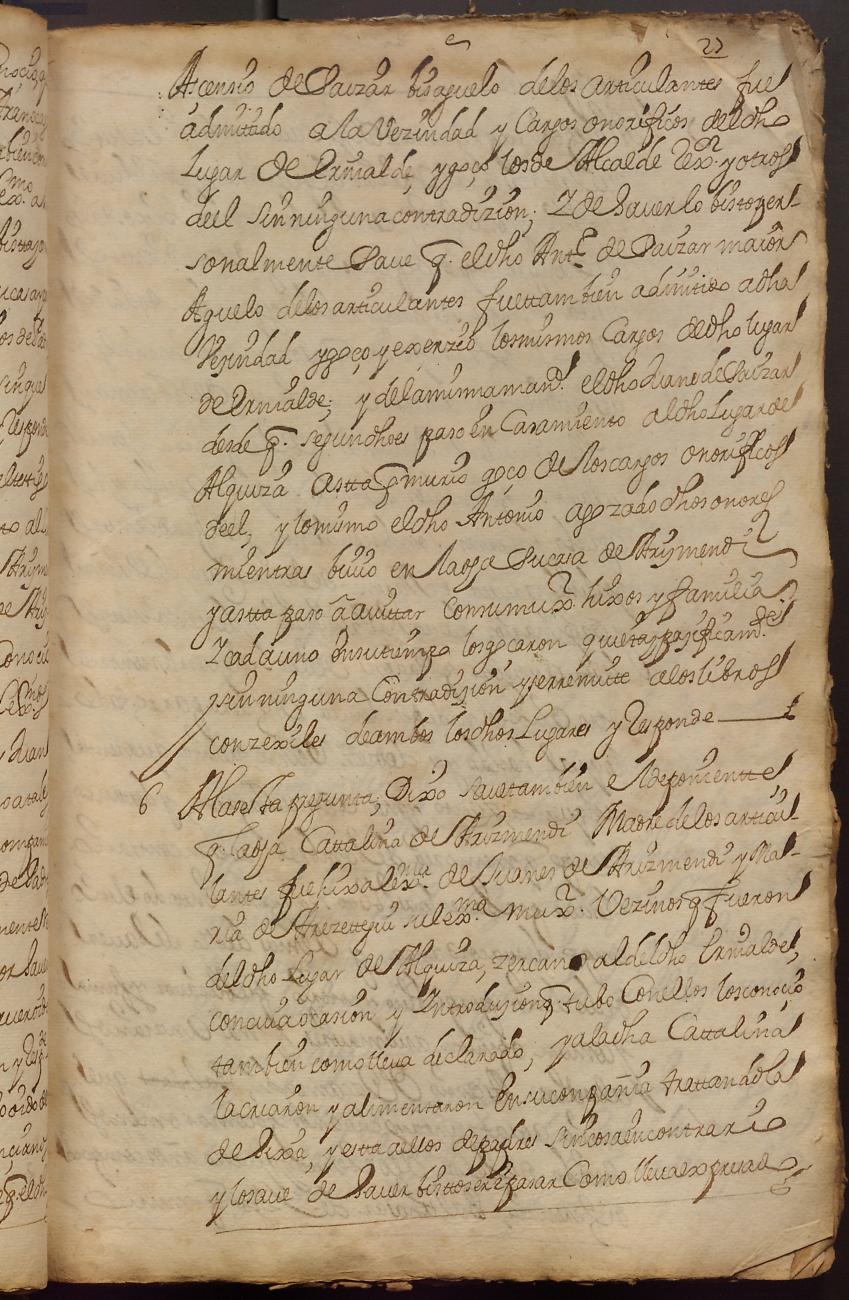 22
Ascensio de Saizar bisaguelo delos articulantes fue
admitido a la Vezindad y Cargos onorificos del dho
Lugar de Ernialde, y goço los de Alcalde Rex.or y otros
deel sin ninguna contradizion; Y de haverlo bisto per-
sonalmente Save q. el dho Ant.o de Saizar maior
Aguelo delos articulantes fue tambien admitido a dha
Vezindad y goço y exerzio los mismos Cargos de dho lugar
de Ernialde; y dela misma man.a el dho Juanes de Saizar
desde q. segun dho es paso en Casamiento al dho Lugar de
Alquiza asta q murio goço de los cargos onorificos
deel, y lo mismo el dho Antonio a gozado dhos onores
mientras bivio en la dha Su casa de Arizmendi
y asta paso a avitar con su mux.r hixos y familia
Y cada uno en su tiempo los goçaron quieta y pasificam.te
y sin ninguna Contradizion y se rremite a los libros
conzexiles de ambos los dhos Lugares y Responde
6 A la sesta pregunta, Dixo save tambien el deponiente
q. la dha Cattalina de Arizmendi Madre de los articu-
lantes fue hixa lex.ma de Juanes de Arizmendi y Ma-
ria de Arezettegui su lex.ma mux.r Vezinos q fueron
del dho Lugar de Alquiza, zercano al del dho Ernialde,
con cuia ocasion y Introduzion q tubo Con ellos los conoçio
tambien como lleva declarado, y a la dha Cattalina
la criaron y alimentaron En su conpañia trattandola
de hixa, y esta a ellos de padres sin cosa en contrario
y lo save de haver bisto ser e pasar Como lleva expresado